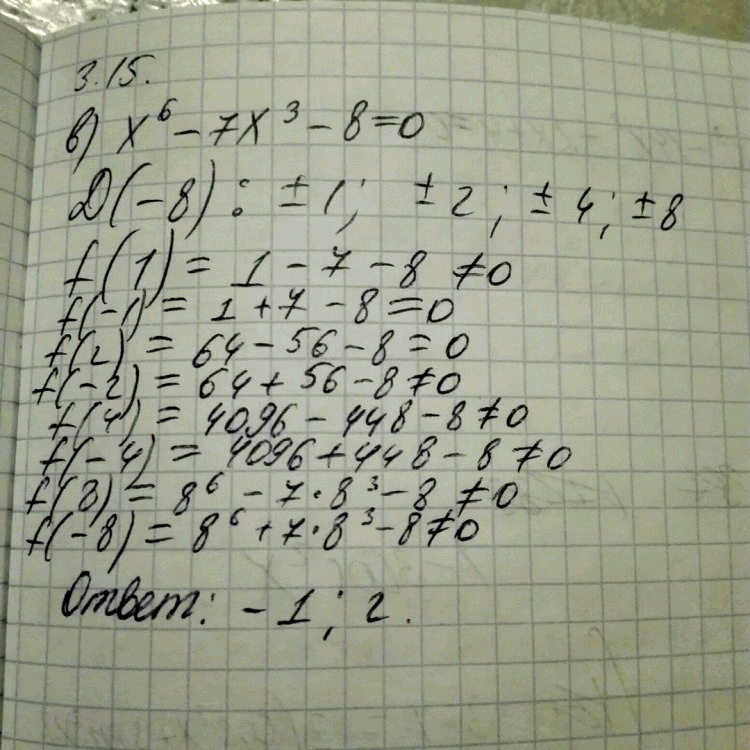 3.15.
в) x⁶ - 7x³ - 8 = 0
D(-8): ±1; ±2; ±4; ±8
f(1) = 1 - 7 - 8 ≠ 0
f(-1) = 1 + 7 - 8 = 0
f(2) = 64 - 56 - 8 = 0
f(-2) = 64 + 56 - 8 ≠ 0
f(4) = 4096 - 448 - 8 ≠ 0
f(-4) = 4096 + 448 - 8 ≠ 0
f(8) = 8⁶ - 7·8³ - 8 ≠ 0
f(-8) = 8⁶ + 7·8³ - 8 ≠ 0
Ответ: -1; 2.